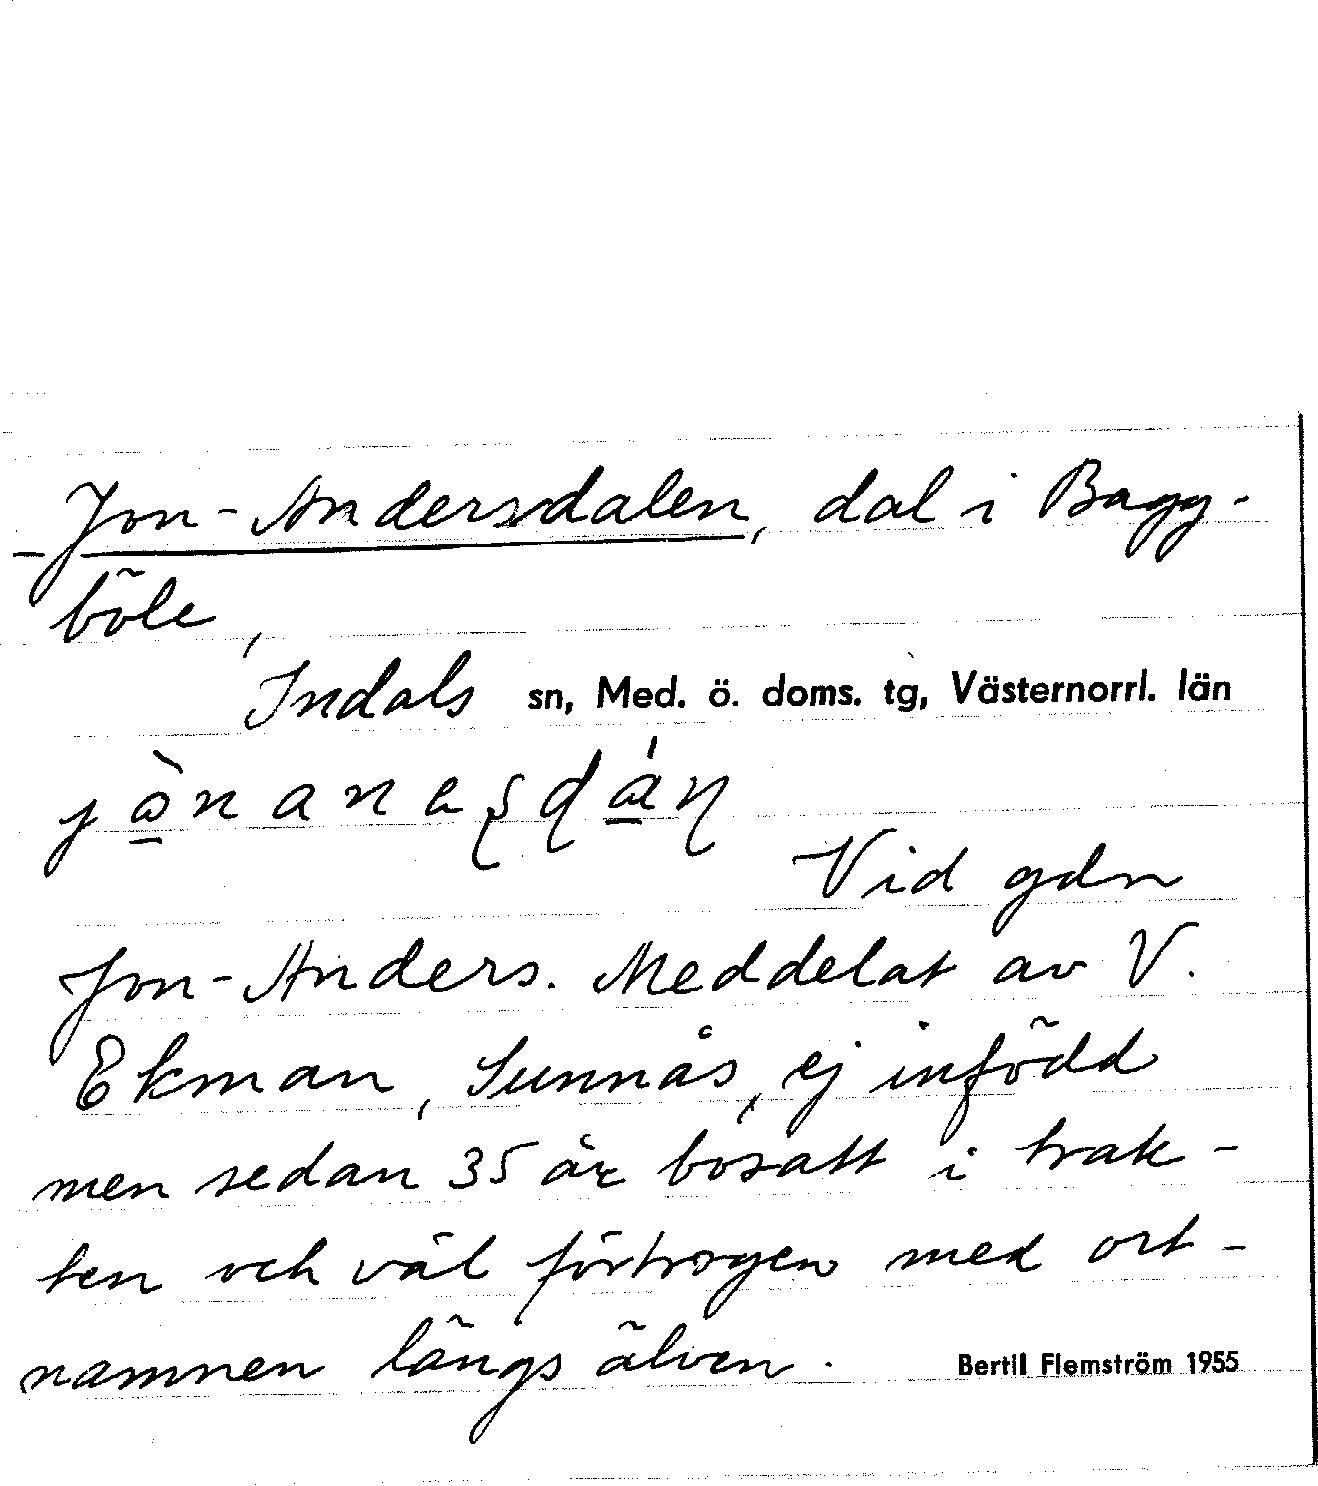 Jon-Andersdalen, dal i Bagg-
böle,
Indals sn, Med. ö. doms. tg, Västernorrl. län
Vid gdn
Jon-Anders. Meddelat av V.
Ekman, Sunnås, ej infödd
men sedan 35 år bosatt i trak-
ten och väl förtrogen med ort-
namnen längs älven.
Bertil Flemström 1955